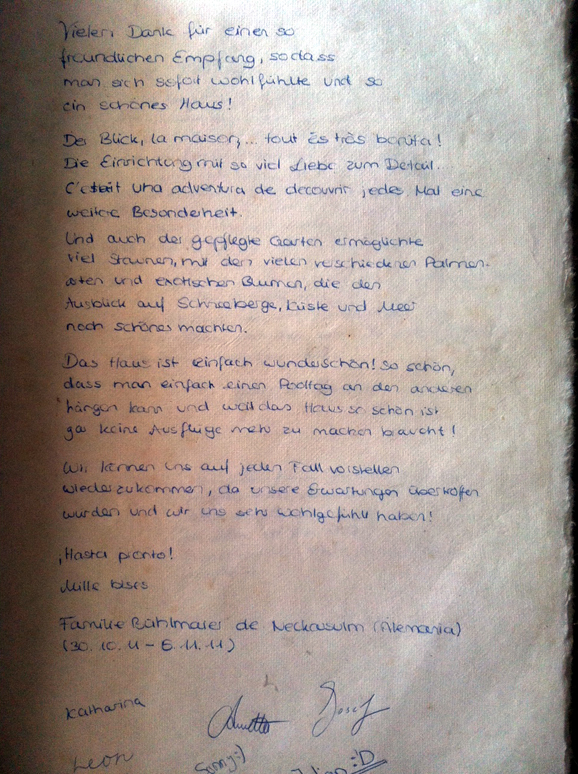 Vielen Dank für einen so
freundlichen Empfang, sodass
man sich sofort wohlfühlte und so
ein schönes Haus!
Der Blick, la maison,... tout és très bonita!
Die Einrichtung mit so viel Liebe zum Detail.
C'etait una adventura de decouvrir jedes Mal eine
weitere Besonderheit.
Und auch der gepflegte Garten ermöglichte
viel Staunen, mit den vielen verschiedenen Palmen-
arten und exotischen Blumen, die den
Ausblick auf Schneeberge, Küste und Meer
noch schöner machten.
Das Haus ist einfach wunderschön! so schön,
dass man einfach einen Pooltag an den anderen
hängen kann und weil das Haus so schön ist
gar keine Ausflüge mehr zu machen braucht!
Wir können uns auf jeden Fall vorstellen
wiederzukommen, da unsere Erwartungen übertroffen
wurden und wir uns sehr wohlgefühlt haben!
¡Hasta pronto!
Mille bises
Familie Bühlmaier de Neckarsulm (Alemania)
(30.10.11 - 6.11.11)
Katharina Annette Josef
Leon Sunny :) :D